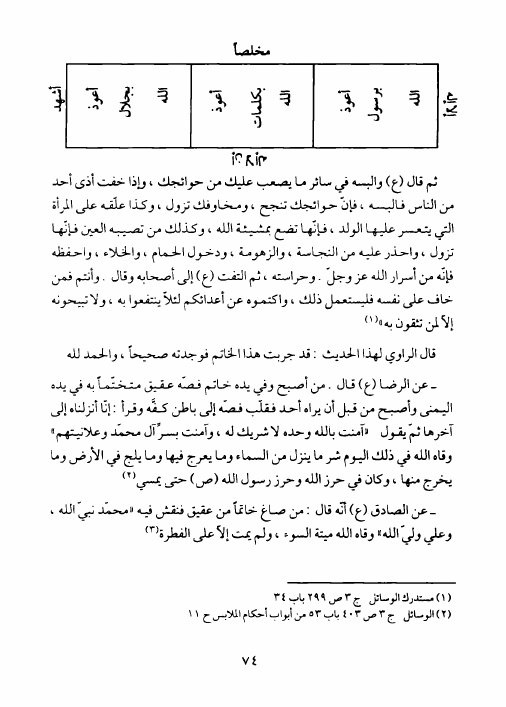 مخلصاً
أشهد
أعوذ
بجلال
الله
أعوذ
بكلمات
الله
أعوذ
برسول
الله
ثم قال (ع) والبسه في سائر ما يصعب عليك من حوائجك ، وإذا خفت أذى أحد
من الناس فالبسه ، فإنّ حوائجك تنجح ، ومخاوفك تزول ، وكذا علّقه على المرأة
التي يتعسر عليها الولد ، فإنّها تضع بمشيئة الله ، وكذلك من تصيبه العين فإنّها
تزول ، واحذر عليه من النجاسة ، والزهومة ، ودخول الحمام ، والخلاء ، واحفظه
فإنّه من أسرار الله عز وجلّ . وحراسته ، ثم التفت (ع) إلى أصحابه وقال . وأنتم فمن
خاف على نفسه فليستعمل ذلك ، واكتموه عن أعدائكم لئلاّ ينتفعوا به ، ولا تبيحونه
إلاّ لمن تثقون به»(١)
قال الراوي لهذا الحديث : قد جربت هذا الخاتم فوجدته صحيحاً ، والحمد لله
ـ عن الرضا (ع) قال . من أصبح وفي يده خاتم فصّه عقيق متختّماً به في يده
اليمنى وأصبح من قبل أن يراه أحد فقلّب فصّه إلى باطن كفّه وقرأ : إنّا أنزلناه إلى
آخرها ثمّ يقول «آمنت بالله وحده لا شريك له ، وآمنت بسرّ آل محمّد وعلانيتهم»
وقاه الله في ذلك اليوم شر ما ينزل من السماء وما يعرج فيها وما يلج في الأرض وما
يخرج منها ، وكان في حرز الله وحرز رسول الله (ص) حتى يمسي(٢)
ـ عن الصادق (ع) أنّه قال : من صاغ خاتماً من عقيق فنقش فيه «محمّد نبيّ الله ،
وعلي وليّ الله» وقاه الله ميتة السوء ، ولم يمت إلاّ على الفطرة(٣)
(١) مستدرك الوسائل ج ٣ ص ٢٩٩ باب ٣٤
(٢) الوسائل ج ٣ ص ٤٠٣ باب ٥٣ من أبواب أحكام الملابس ح ١١
٧٤